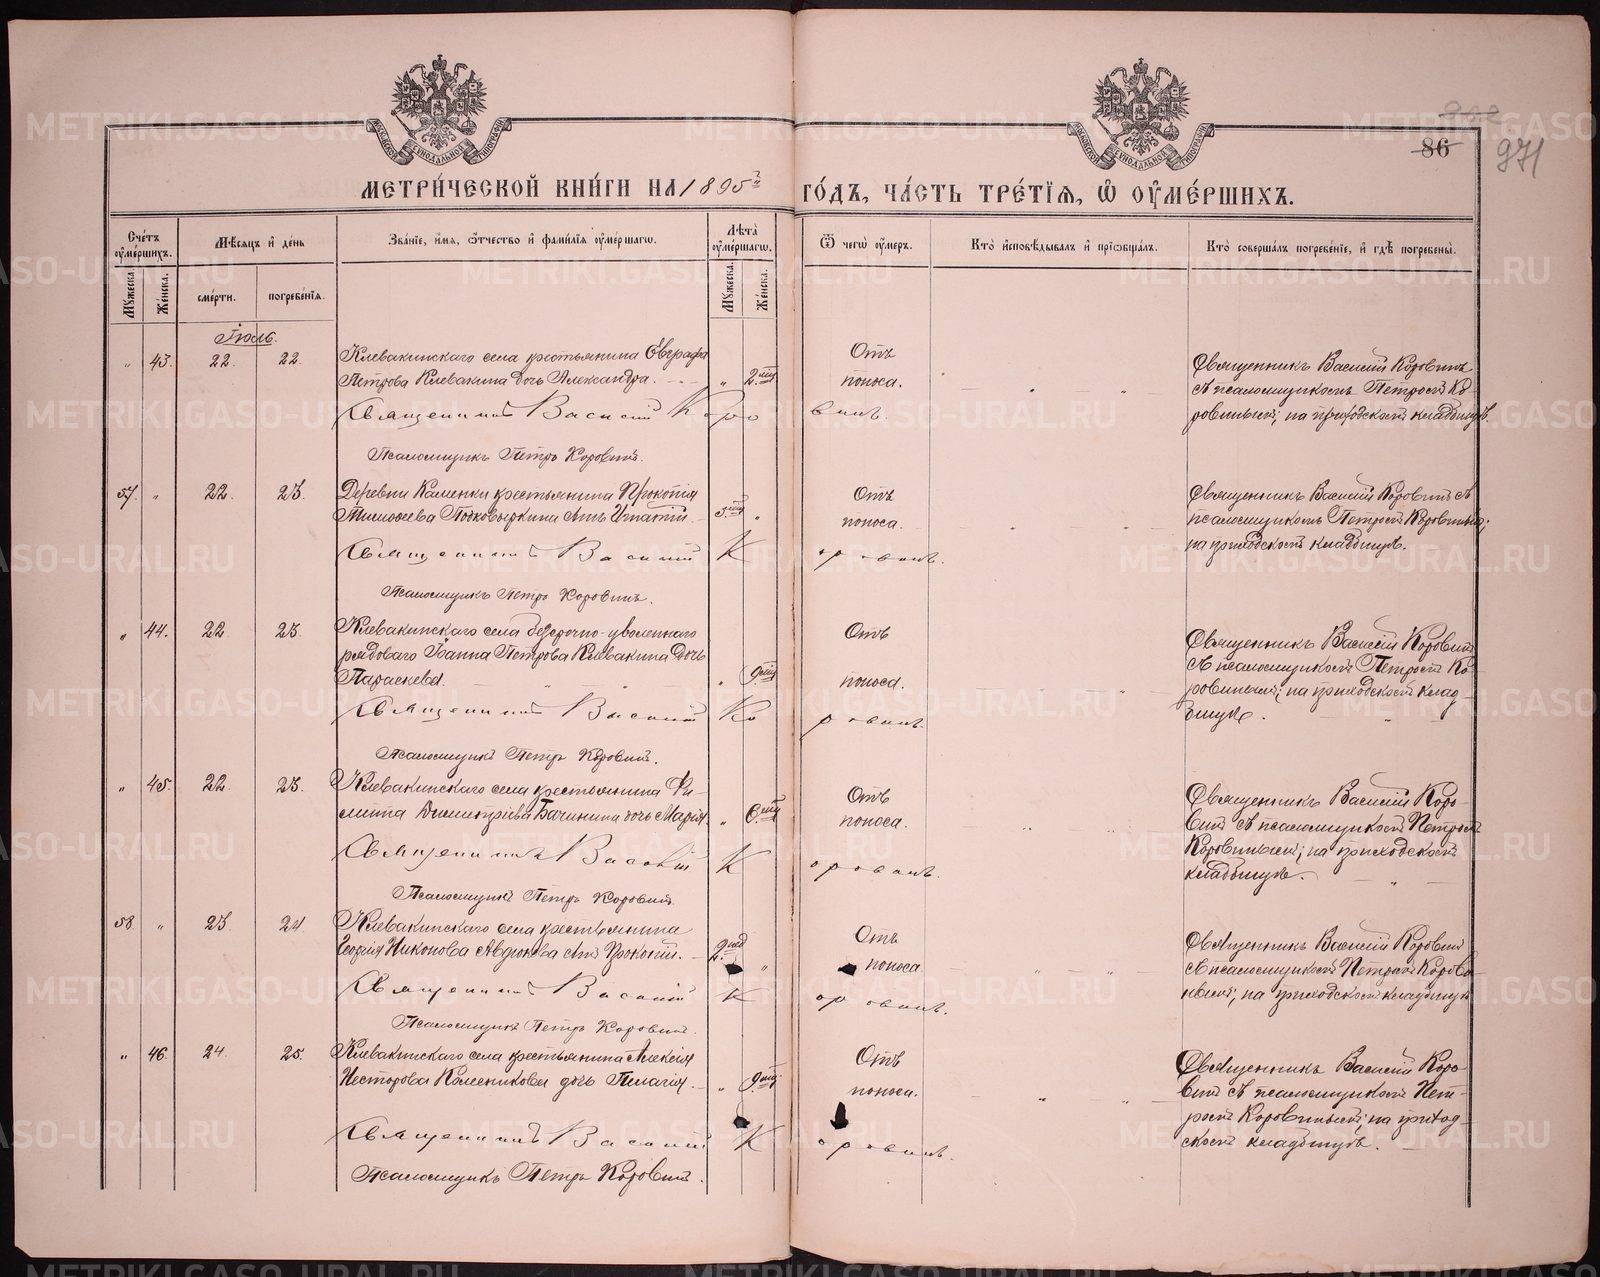 86
971
МЕТРИЧЕСКОЙ КНИГИ НА 1895й ГОДЪ, ЧАСТЬ ТРЕТІЯ, Ѡ ОУМЕРШИХЪ.
Счетъ оумершихъ.
Мѣсяцъ и день
Званіе, имя, отчество и фамилія оумершагω.
Лѣта оумершагω.
Ѿ чегω оумеръ.
Кто исповѣдывалъ и пріωбщалъ.
Кто совершалъ погребеніе, и гдѣ погребены.
Мужеска.
Женска.
смерти.
погребенія.
Мужеска.
Женска.
Іюль.
" 43. 22. 22. Клевакинскаго села крестьянина Евграфа
Петрова Клевакина дочь Александра. " 2.мц
Отъ
поноса.
Священникъ Василій Коровинъ
съ псаломщикомъ Петромъ Ко
ровинымъ; на приходскомъ кладбищѣ.
Священникъ Василій Коровинъ.
Псаломщикъ Петръ Коровинъ.
57. " 22. 23. Деревни Каменки крестьянина Прокопія
Тимофеева Подковыркина сынъ Игнатій. 5.мц "
Отъ
поноса.
Священникъ Василій Коровинъ съ
псаломщикомъ Петромъ Коровинымъ;
на приходскомъ кладбищѣ.
Священникъ Василій Коровинъ.
Псаломщикъ Петръ Коровинъ.
" 44. 22. 23. Клевакинскаго села безсрочно-уволеннаго
рядоваго Іоанна Петрова Клевакина дочь
Параскева. " 9мц
Отъ
поноса.
Священникъ Василій Коровинъ
съ псаломщикомъ Петромъ Ко-
ровинымъ; на приходскомъ клад
бищѣ.
Священникъ Василій Коровинъ.
Псаломщикъ Петръ Коровинъ.
" 45. 22. 23. Клевакинскаго села крестьянина Фи-
липпа Димитріева Бачинина дочь Марія. " 6.мц
Отъ
поноса.
Священникъ Василій Коро-
винъ съ псаломщикомъ Петромъ
Коровинымъ; на приходскомъ
кладбищѣ.
Священникъ Василій Коровинъ.
Псаломщикъ Петръ Коровинъ.
58. " 23. 24. Клевакинскаго села крестьянина
Георгія Никонова Авдюкова сынъ Прокопій. "
Отъ
поноса
Священникъ Василій Коровинъ
съ псаломщикомъ Петромъ Корови-
нымъ; на приходскомъ кладбищѣ
Священникъ Василій Коровинъ.
Псаломщикъ Петръ Коровинъ.
" 46. 24. 25. Клевакинскаго села крестьянина Алексія
Несторова дочь Пелагія. " 9мц
Отъ
поноса.
Священникъ Василій Коро-
винъ съ псаломщикомъ Пет-
ромъ Коровинымъ; на приход-
скомъ кладбищѣ.
Священникъ Василій Коровинъ.
Псаломщикъ Петръ Коровинъ.
METRIKI.GASO-URAL.RU